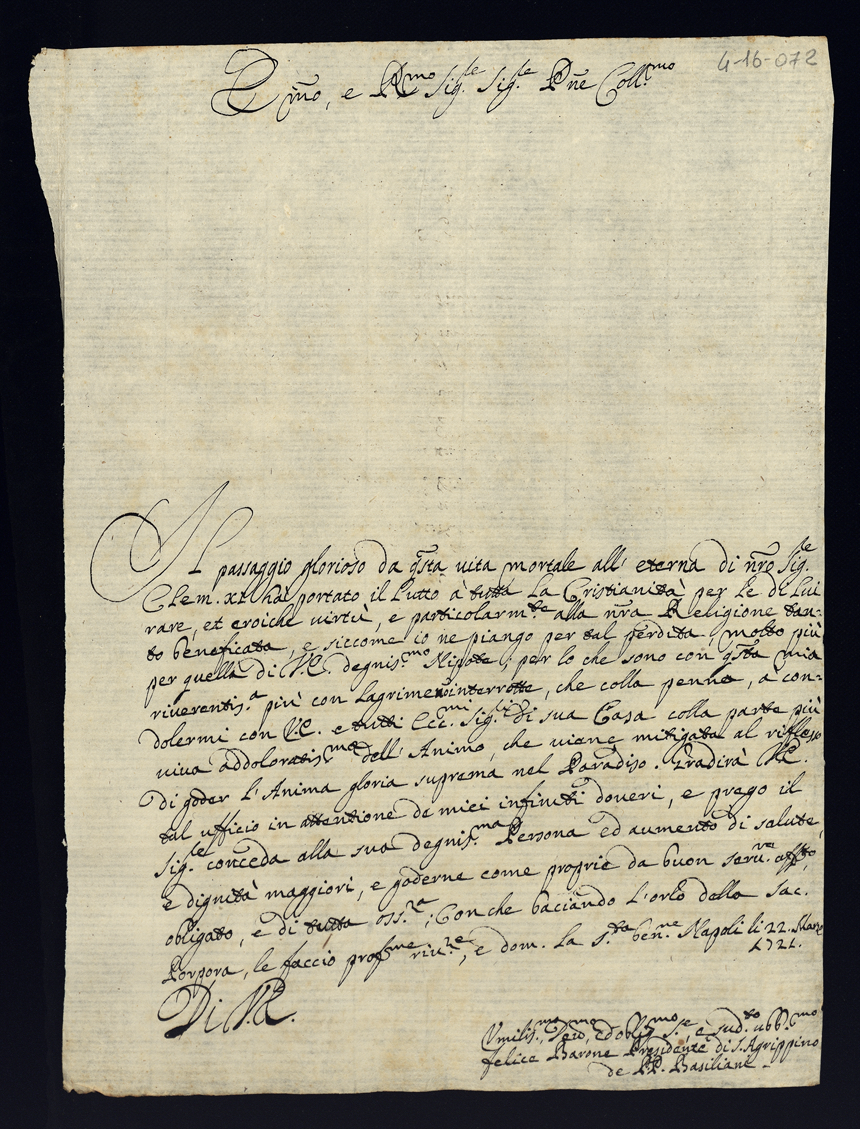 4-16-072
E͠mo, e R͠mo Sig.re Sig.re P͠ne Coll.mo
Il passaggio glorioso da q͠sta vita mortale all' eterna di n͠ro Sig.re
Clem. XI. hà portato il lutto à tutta la Cristianità per le di lui
rare, et eroiche virtù, e particolarm.te alla n͠ra Religione tan-
to beneficata, e siccome io ne piango per tal perdita, molto più
per quella di V.E. degnis.mo Nipote; per lo che sono con q͠sta mia
riverentis.a più con lagrime interrotte, che colla penna, a con-
dolermi con V.E. e tutti Ecc.mi Sig.ri di sua Casa colla parte più
viva addoloratis.ma dell' Animo, che viene mitigata al riflesso
di goder l'Anima gloria suprema nel Paradiso. Gradirà V.E.
tal ufficio in attentione de miei infiniti doveri, e prego il
Sig.re conceda alla sua degnis.ma Persona ed aumento di salute,
e dignità maggiori, e goderne come proprie da buon serv.re aff.to,
obligato, e di tutta oss.a; Con che baciando l'orlo della sac.
Porpora, le faccio prof.me riv.ze, e dom. la S.ta ben.ne Napoli li 22. Marzo
1721.
Di V.E.
Umilis.mo, Dev.mo, ed oblig.mo S.e, e sud.to obb.mo
Felice Barone Presidente di S. Agrippino
de PP. Basiliani